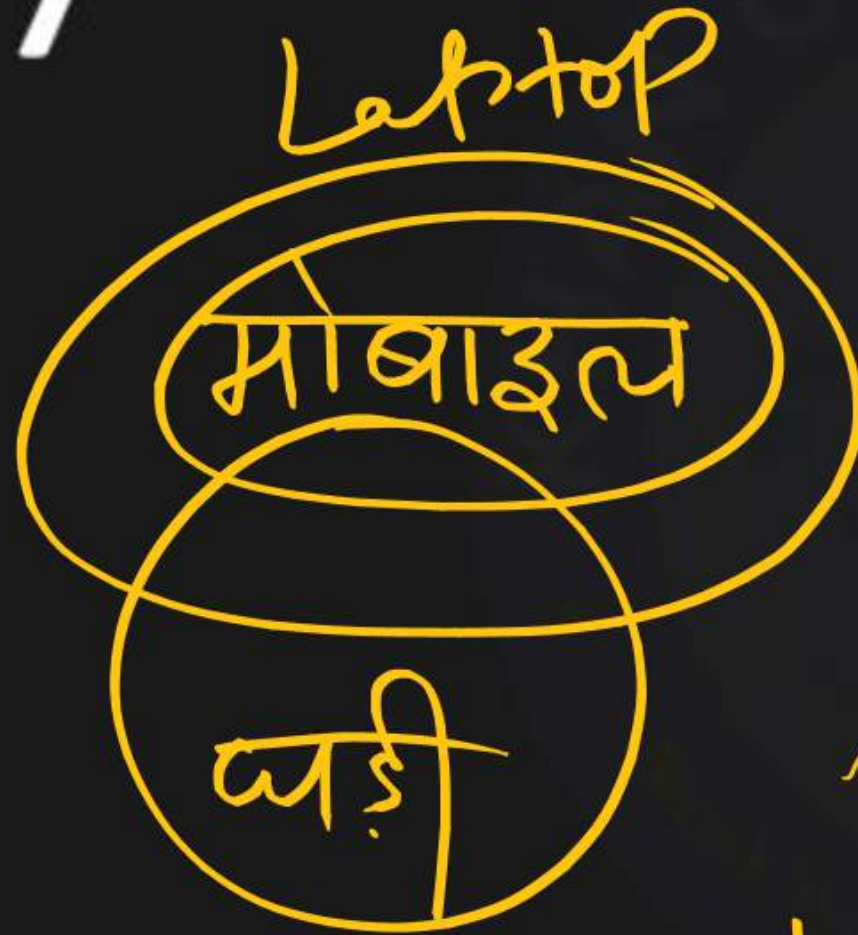 Laptop
मोबाइल
घड़ी